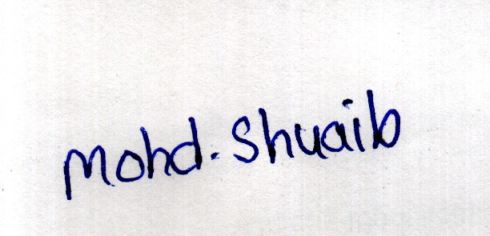 Mohd. Shuaib